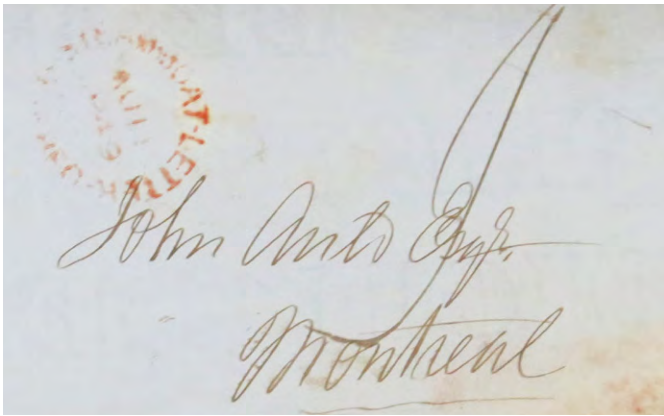 STEAMBOAT-LETTER
John Auld Esqr.
Montreal